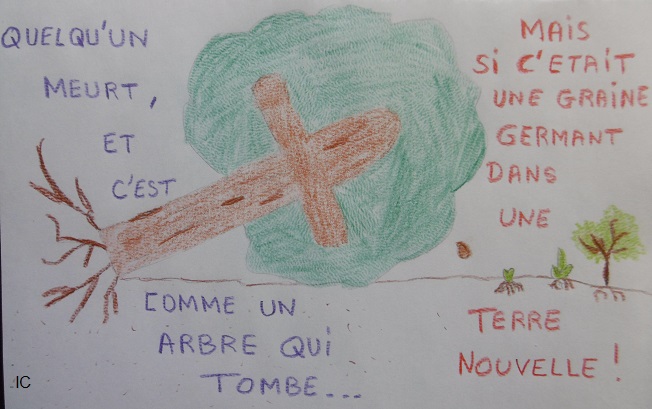 QUELQU'UN
MEURT,
ET
C'EST
COMME UN
ARBRE QUI
TOMBE...
MAIS
Si C'ETAIT
UNE GRAINE
GERMANT
DANS
UNE
TERRE
NOUVELLE !
IC